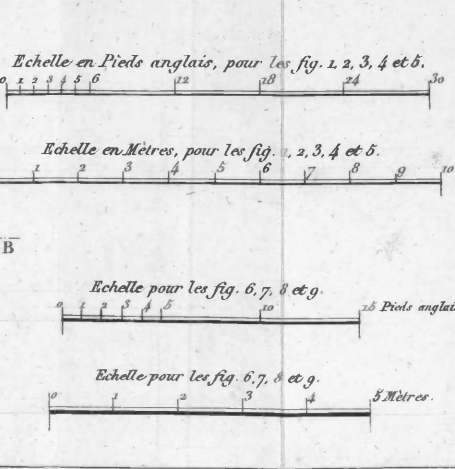 Echelle en Pieds anglais, pour les fig. 1, 2, 3, 4 et 5.
0 1 2 3 4 5 6 12 18 24 30
Echelle en Mètres, pour les fig. 1, 2, 3, 4 et 5.
1 2 3 4 5 6 7 8 9 10
B
Echelle pour les fig. 6, 7, 8 et 9.
0 1 2 3 4 5 10 15 Pieds anglais
Echelle pour les fig. 6, 7, 8 et 9.
0 1 2 3 4 5 Mètres.